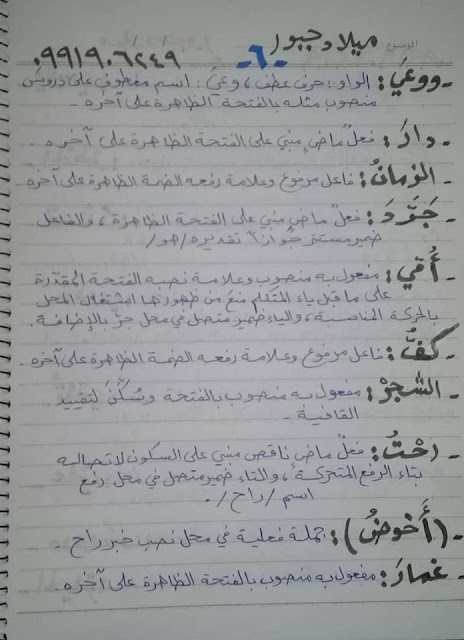 المدرس ميلاد جبور -٦- ٠٩٩١٩٠٦٢٤٩
- ووعيَ: الواو: حرف عطف، وعيَ: اسم معطوف على دروس
منصوب مثله بالفتحة الظاهرة على آخره.
- دارَ: فعلٌ ماضٍ مبني على الفتحة الظاهرة على آخره.
- الزمانُ: فاعل مرفوع وعلامة رفعه الضمة الظاهرة على آخره.
- جَرَّدَ: فعلٌ ماضٍ مبني على الفتحة الظاهرة، والفاعل
ضمير مستتر جوازاً تقديره /هو/
- أُمّي: مفعول به منصوب وعلامة نصبه الفتحة المقدّرة
على ما قبل ياء المتكلم منع من ظهورها اشتغال المحل
بالحركة المناسبة، والياء ضمير متصل في محل جرّ بالإضافة.
- كفُّ: فاعل مرفوع وعلامة رفعه الضمة الظاهرة على آخره.
- الشجرْ: مفعول به منصوب بالفتحة وسُكِّنَ لتقييد
القافية.
- رحْتُ: فعلٌ ماضٍ ناقص مبني على السكون لاتصاله
بتاء الرفع المتحركة، والتاء ضمير متصل في محل رفع
اسم /راح/.
- (أَخوضُ): جملة فعلية في محل نصب خبر راح
- غمارَ: مفعول به منصوب بالفتحة الظاهرة على آخره